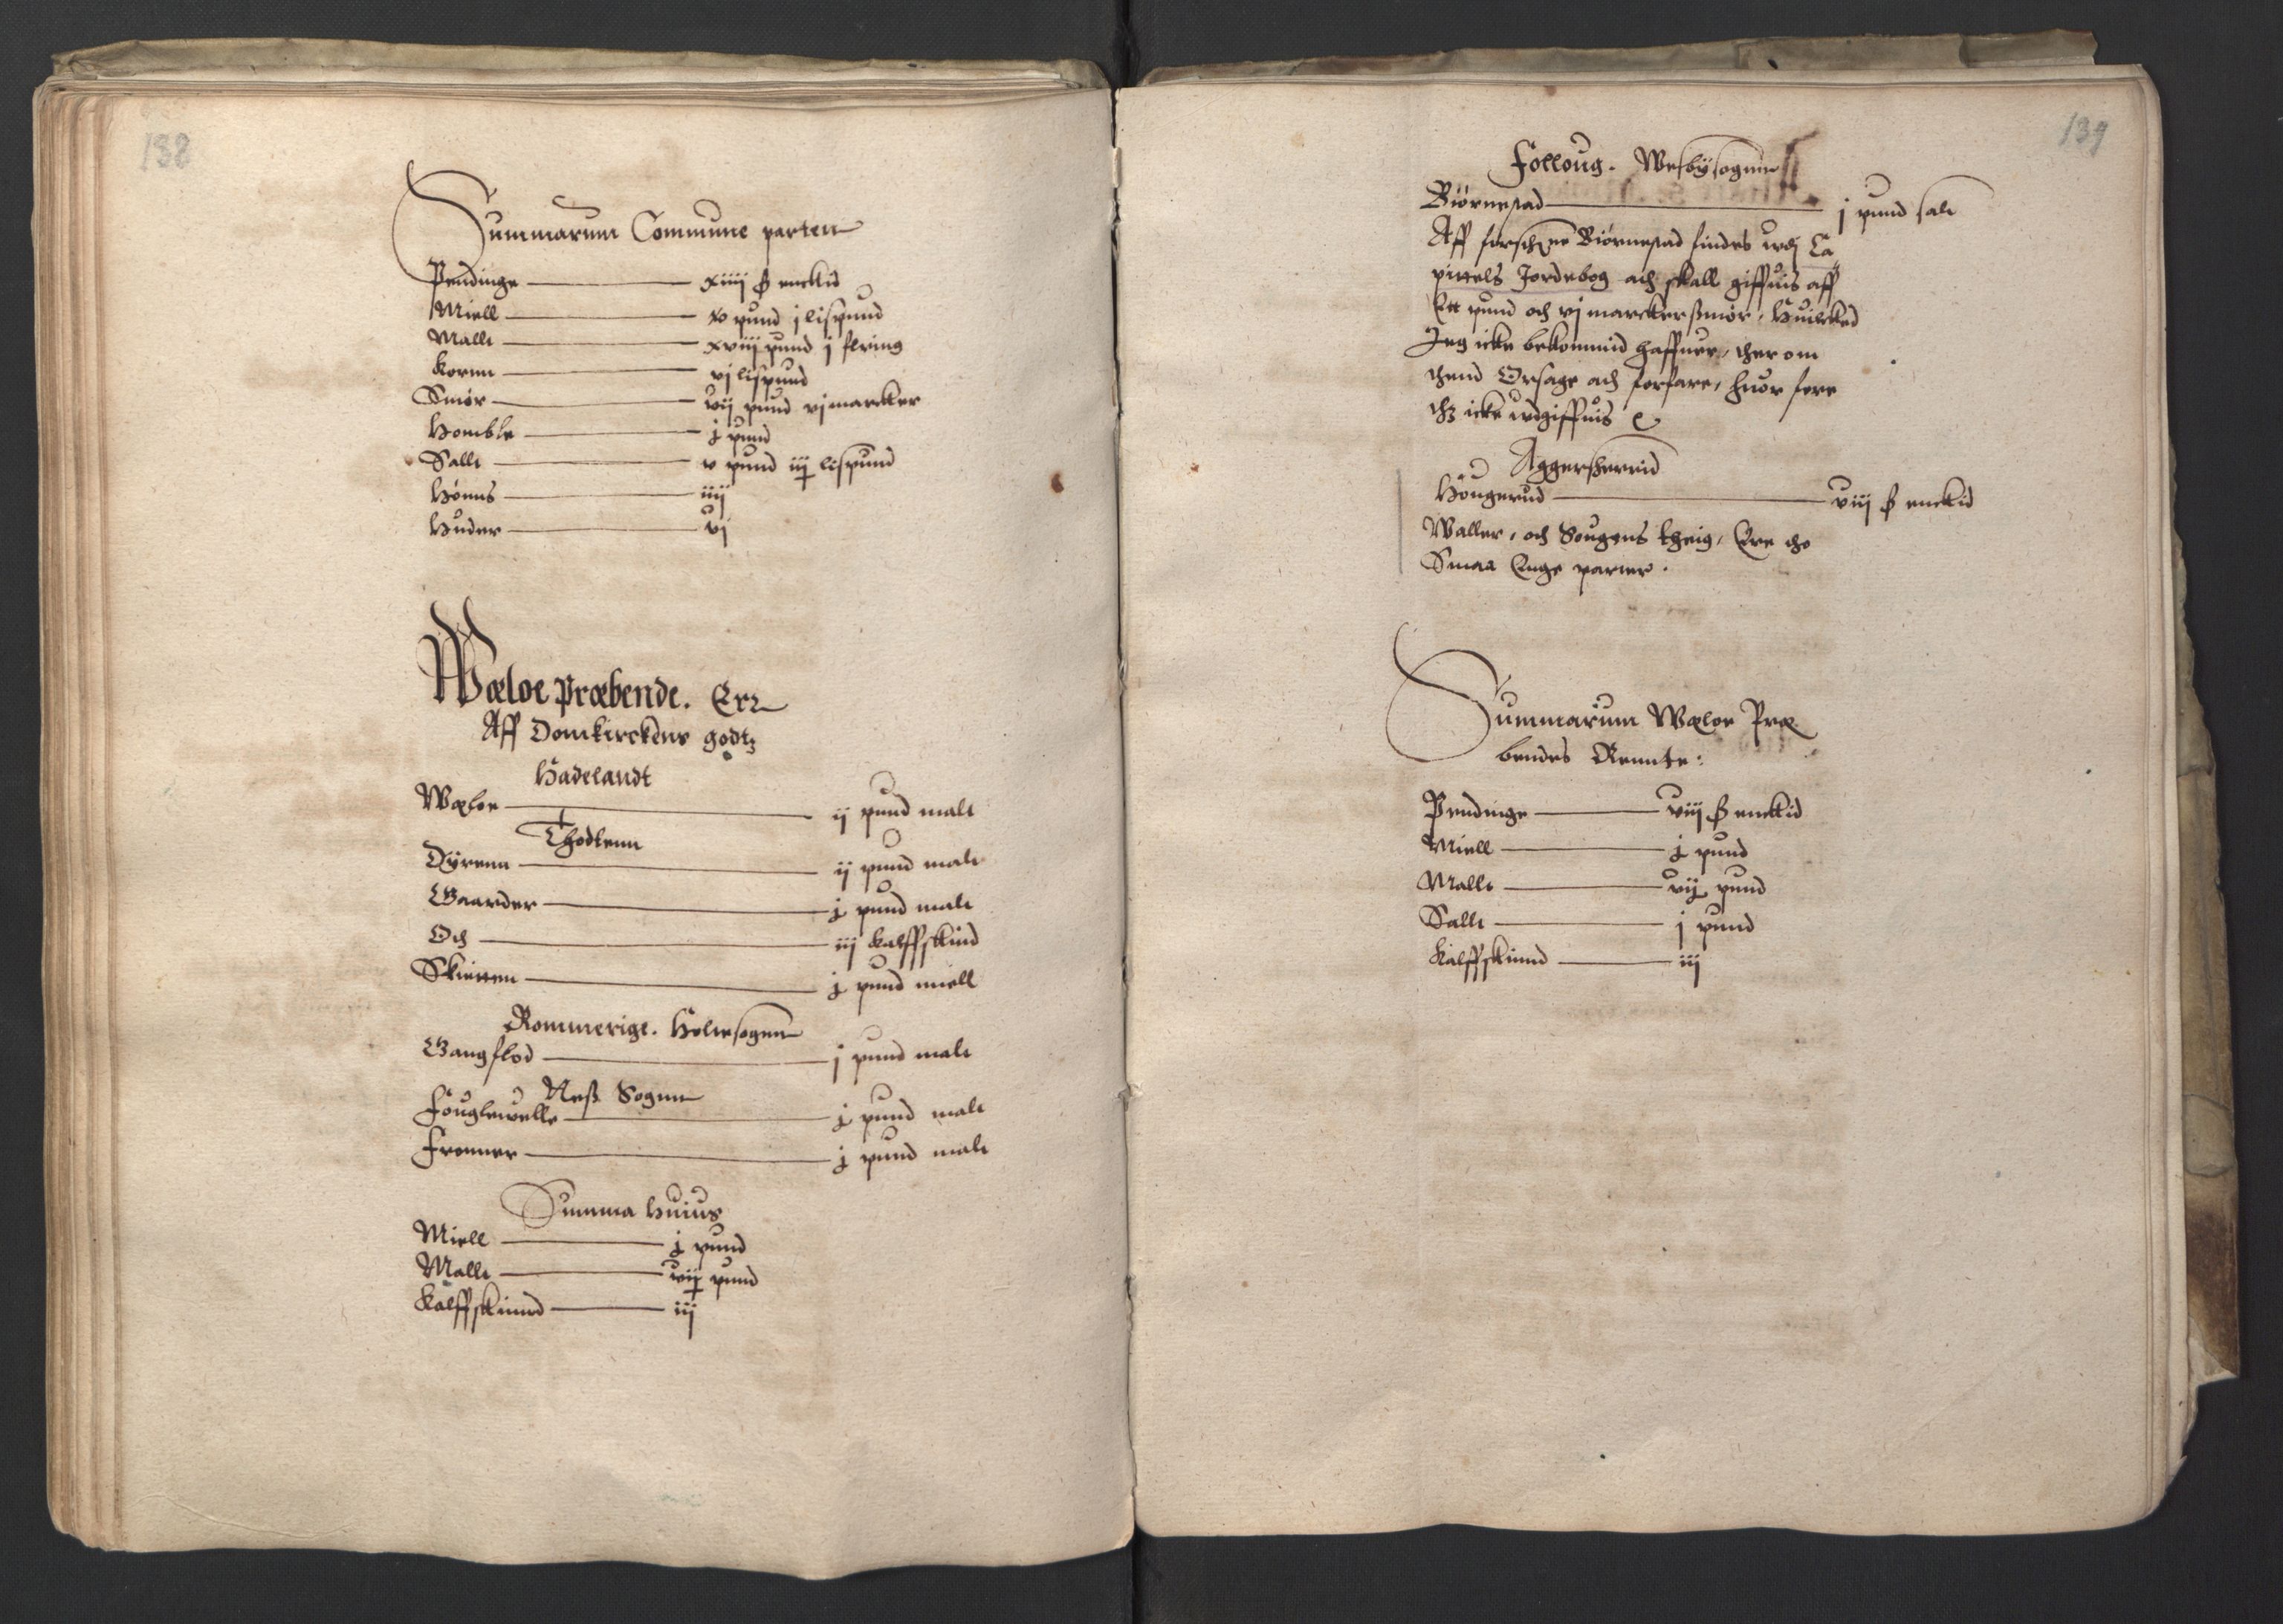 138
Summarum Commune parten
Pendinge xiiij ß enckid
Miell xv pund j lispund
Mallt xviij pund j flring
Kornn vj lispund
Smør vij pund vj marcker
Homble j pund
Sallt v pund iij lispund
Hønns iiij
Huder vj
Wæloe Præbende. Err
Aff Domkirckens godtz
Hadelandt
Wæloe ij pund malt
Thodtenn
Dÿrenn ij pund malt
Gaarder j pund malt
Och iij kalffskind
Skietten j pund miell
Rommerige. Holtesogenn
Gangflod j pund malt
Neß Sogenn
Fouglewelle j pund malt
Frenner j pund malt
Summa huius
Miell j pund
Mallt vij pund
Kalffskinnd iij
139
Folloug. Wesbÿsognn
Biørnestad j pund salt
Aff forschne Biørnestad findes wdj Ca
pittels Jordebog ath skall giffuis aff
Ett pund och vj marcker smør, Huilcked
Jeg icke bekommid haffuer, ther om
thend Orsage ath forfare, huor fore
thz icke udgiffuis
Aggersherrid
Hougerud viij ß enckid
Waller, och Sougens theig, Ere tho
Smaa Enge parter.
Summarum Wæloe Præ
bendes Rennte:
Pendinge viij ß enckid
Miell j pund
Mallt vij pund
Sallt j pund
Kalffskinnd iij